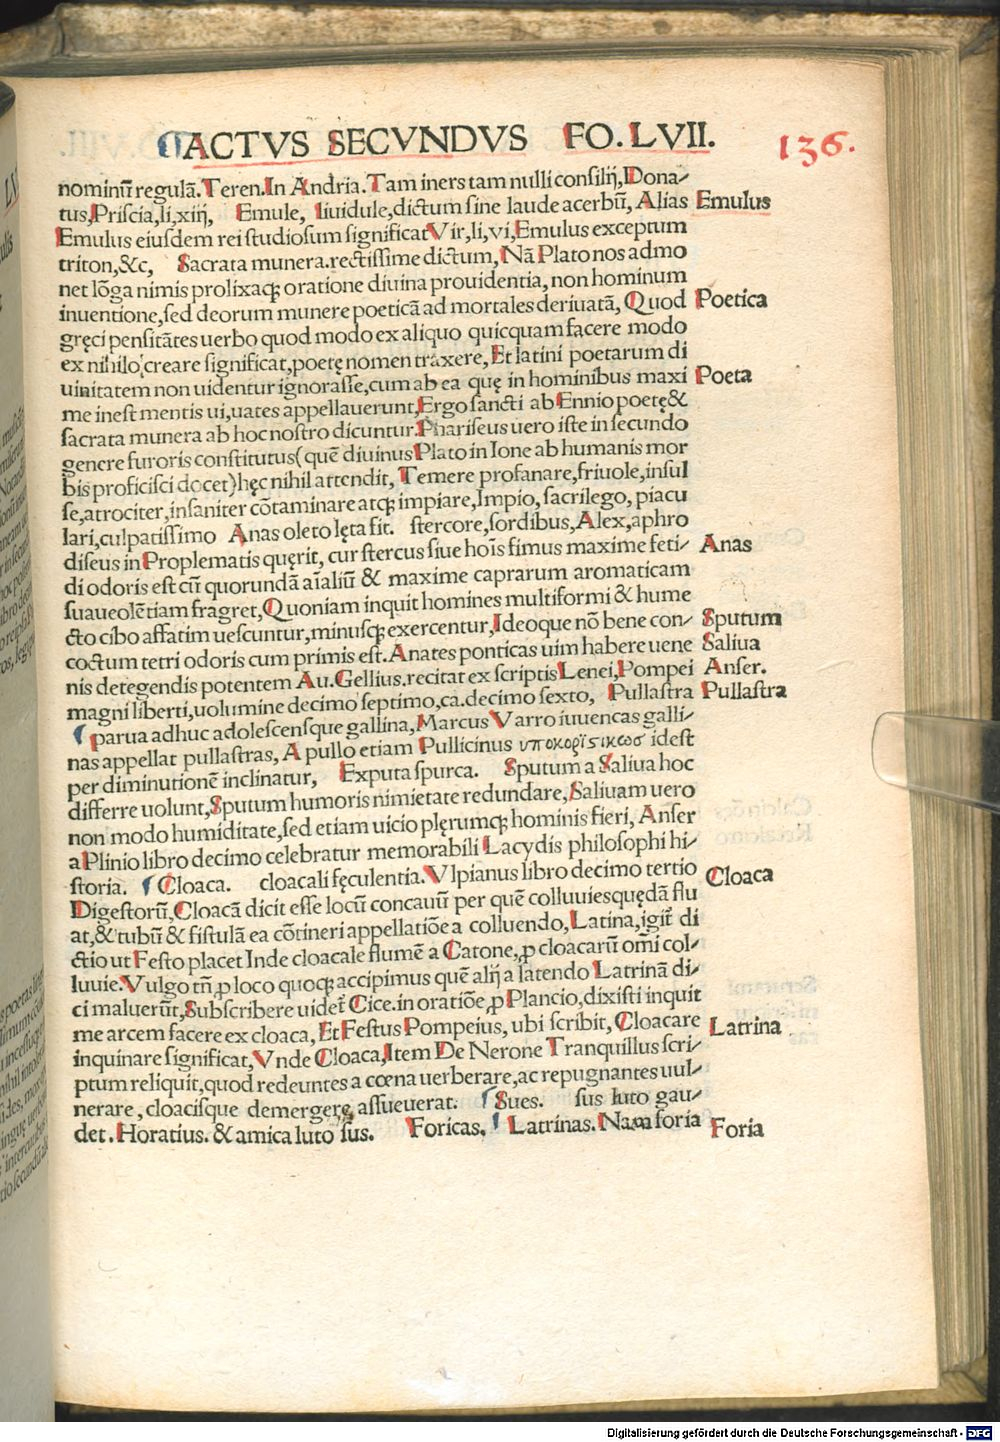 ACTVS SECVNDVS FO. LVII. 136.
nominū regulā. Teren. In Andria. Tam iners tam nulli consilij, Dona-
tus, Priscia, li, xiij, Emule, liuidule, dictum sine laude acerbū, Alias Emulus
Emulus eiusdem rei studiosum significat Vir, li, vi, Emulus exceptum
triton, &c, Sacrata munera. rectissime dictum, Nā Plato nos admo
net lōga nimis prolixaqꝫ oratione diuina prouidentia, non hominum
inuentione, sed deorum munere poeticā ad mortales deriuatā, Quod Poetica
gręci pensitātes uerbo quod modo ex aliquo quicquam facere modo
ex nihilo creare significat, poetę nomen traxere, Et latini poetarum di
uinitatem non uidentur ignorasse, cum ab ea quę in hominibus maxi Poeta
me inest mentis ui, uates appellauerunt, Ergo sancti ab Ennio poetę &
sacrata munera ab hoc nostro dicuntur. Phariseus uero iste in secundo
genere furoris constitutus (quē diuinus Plato in Ione ab humanis mor
bis proficisci docet) hęc nihil attendit, Temere profanare, friuole, insul
se, atrociter, insaniter cōtaminare atqꝫ impiare, Impio, sacrilego, piacu
lari, culpatissimo Anas oleto lęta fit. stercore, sordibus, Alex, aphro
diseus in Proplematis quęrit, cur stercus siue hoīs fimus maxime feti- Anas
di odoris est cū quorundā aīaliū & maxime caprarum aromaticam
suaueolētiam fragret, Quoniam inquit homines multiformi & hume
cto cibo affatim uescuntur, minusqꝫ exercentur, Ideoque nō bene con- Sputum
coctum tetri odoris cum primis est. Anates ponticas uim habere uene Saliua
nis detegendis potentem Au. Gellius. recitat ex scriptis Lenei, Pompei Anser.
magni liberti, uolumine decimo septimo, ca. decimo sexto, Pullastra Pullastra
parua adhuc adolescensque gallina, Marcus Varro iuuencas galli-
nas appellat pullastras, A pullo etiam Pullicinus υποκορϊςικωσ idest
per diminutionē inclinatur, Exputa spurca. Sputum a Saliua hoc
differre uolunt, Sputum humoris nimietate redundare, Saliuam uero
non modo humiditate, sed etiam uicio plęrumqꝫ hominis fieri, Anser
a Plinio libro decimo celebratur memorabili Lacydis philosophi hi-
storia. Cloaca. cloacali fęculentia. Vlpianus libro decimo tertio Cloaca
Digestorū, Cloacā dicit esse locū concauū per quē colluuiesquędā flu
at, & tubū & fistulā ea cōtineri appellatiōe a colluendo, Latina, igit̃ di
ctio ut Festo placet Inde cloacale flumē a Catone, ꝓ cloacarū om̄i col-
luuie. Vulgo tn̄ ꝓ loco quoqꝫ accipimus quē alij a latendo Latrinā di-
ci maluerūt, Subscribere uidet̃ Cice. in oratiōe ꝓ Plancio, dixisti inquit
me arcem facere ex cloaca, Et Festus Pompeius, ubi scribit, Cloacare Latrina
inquinare significat, Vnde Cloaca, Item De Nerone Tranquillus scri-
ptum reliquit, quod redeuntes a cœna uerberare, ac repugnantes uul-
nerare, cloacisque demergere, assueuerat. Sues. sus luto gau-
det. Horatius. & amica luto sus. Foricas, Latrinas. Nam foria Foria
Digitalisierung gefördert durch die Deutsche Forschungsgemeinschaft - DFG